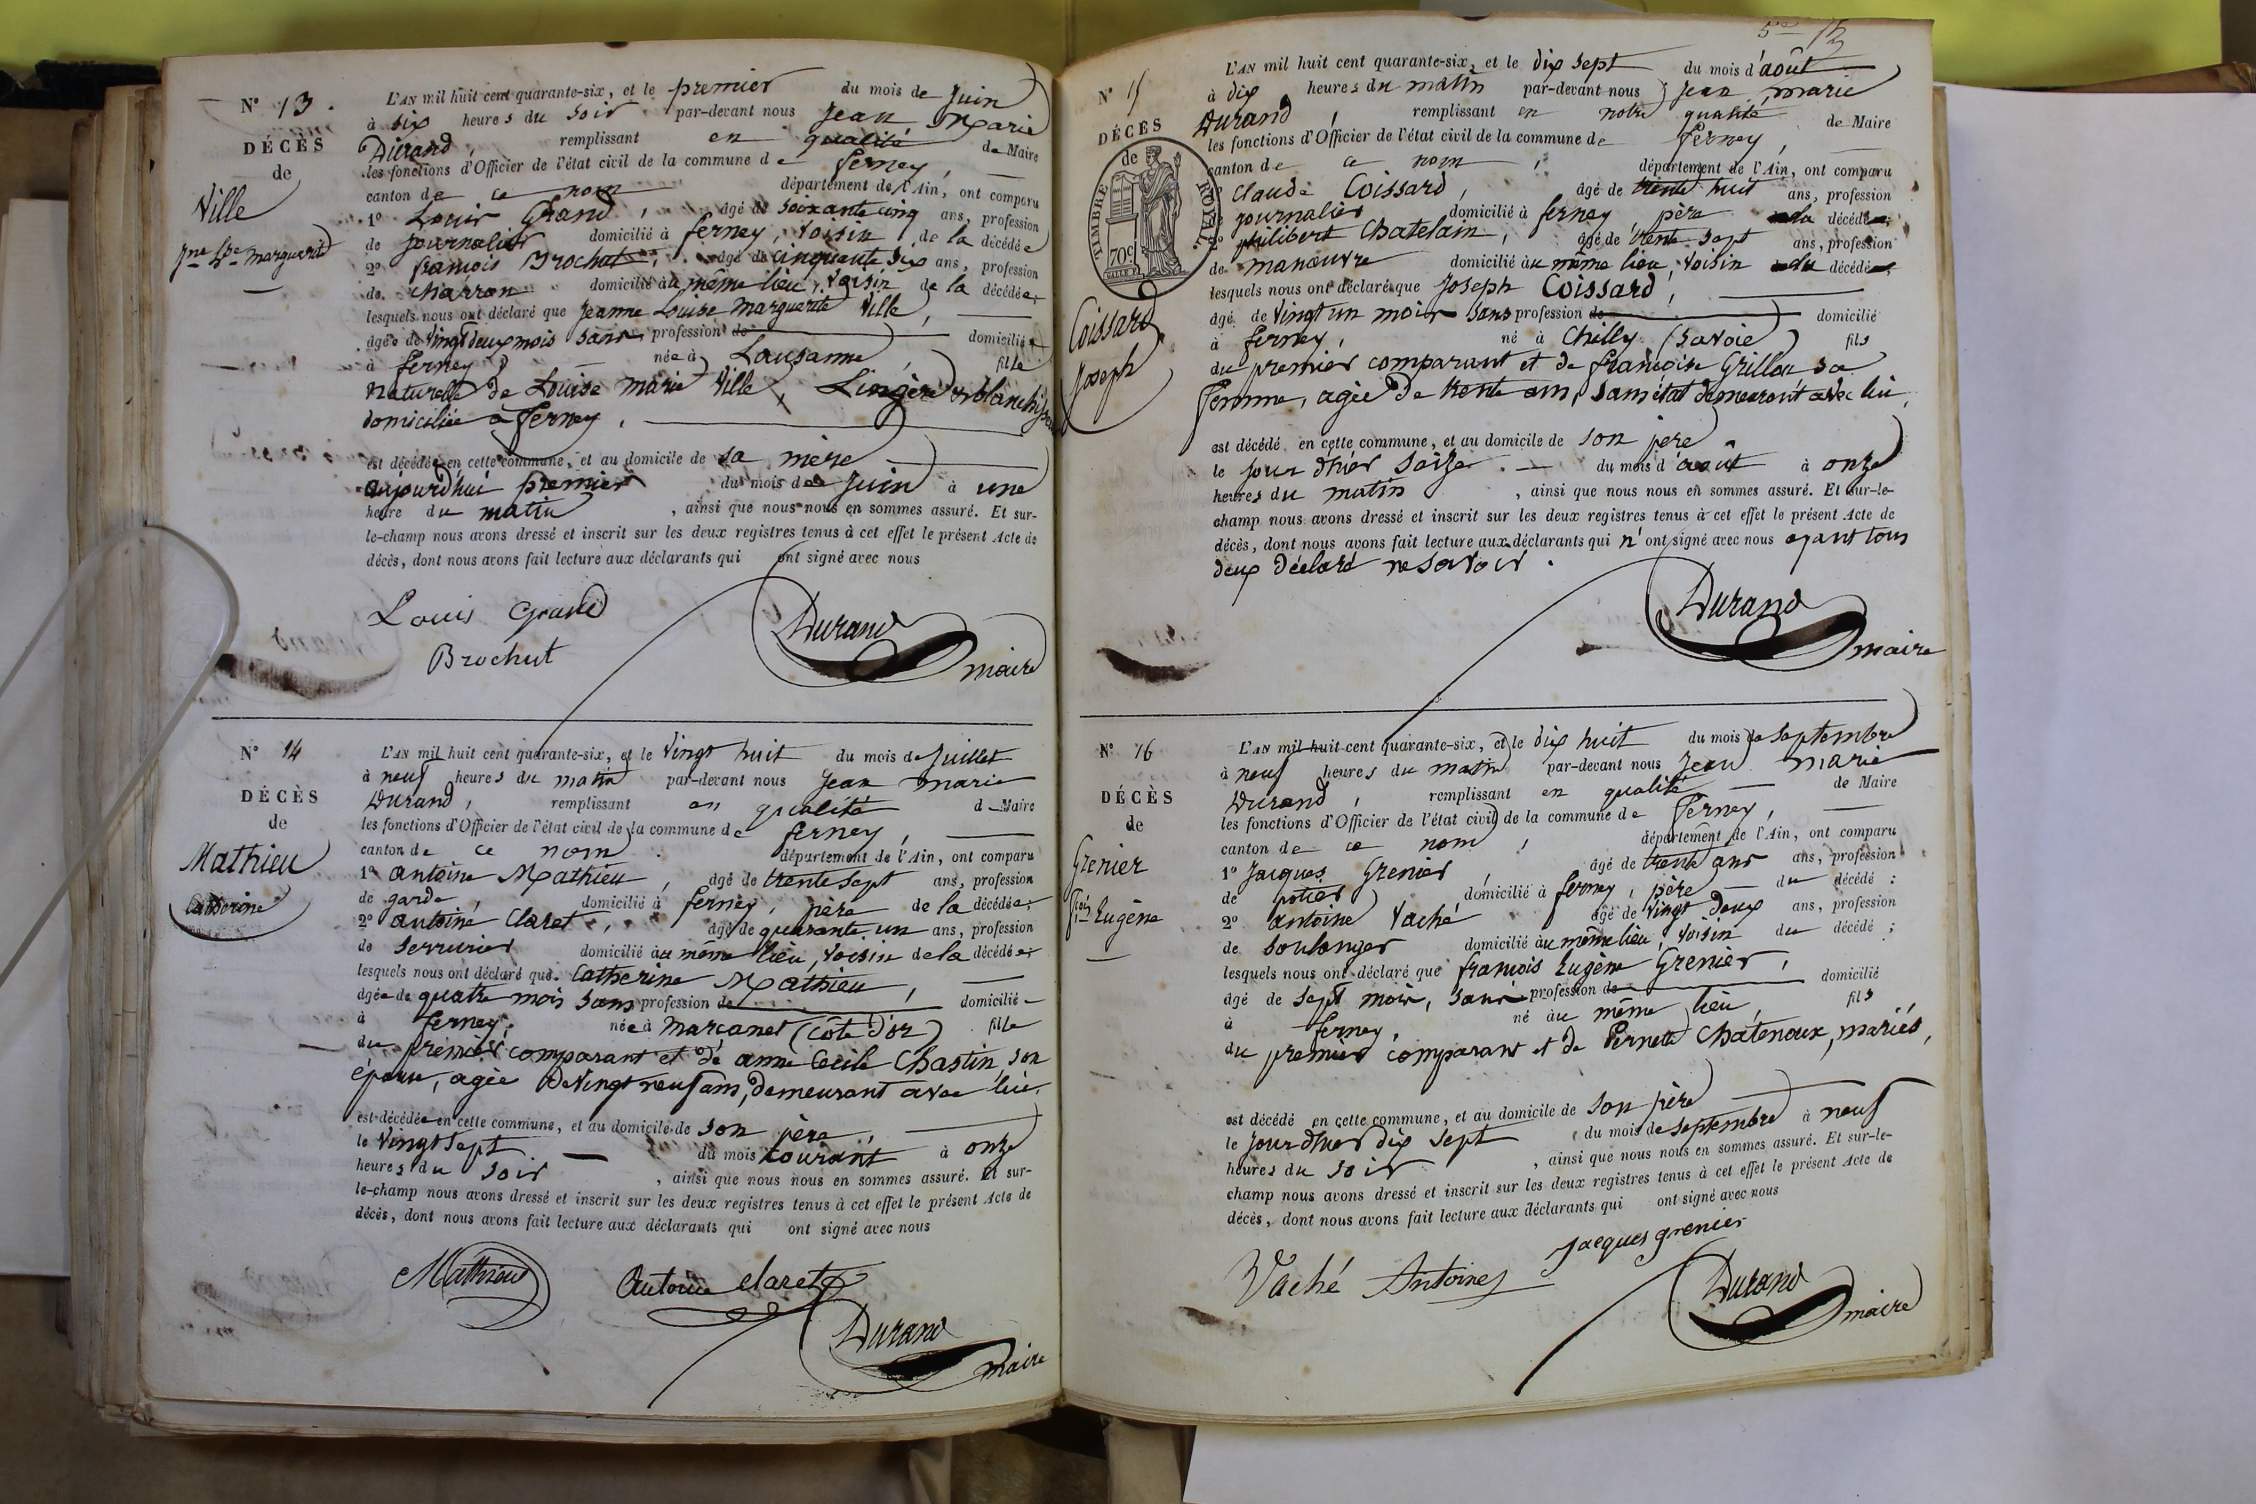 N° 13.
DÉCÈS
de
Ville
Jne Lse Marguerite
L'AN mil huit cent quarante-six, et le premier du mois de juin
à six heures du soir par-devant nous Jean Marie
Durand, remplissant en qualité de Maire
les fonctions d'Officier de l'état civil de la commune de ferney,
canton de ce nom département de l'Ain, ont comparu
1° Louis Grand, âgé de soixante cinq ans, profession
de journalier domicilié à ferney, voisin de la décédée
2° francois Brochut, âgé de cinquante six ans, profession
de charron domicilié au même lieu, voisin de la décédée;
lesquels nous ont déclaré que jeanne Louise marguerite Ville,
âgée de vingt deux mois sans profession de domiciliée
à ferney, née à Lausanne, fille
naturelle de Louise marie Ville, Lingère
domiciliée à ferney.
est décédée en cette commune, et au domicile de sa mère
aujourd'hui premier du mois de juin à une
heure du matin, ainsi que nous nous en sommes assuré. Et sur-
le-champ nous avons dressé et inscrit sur les deux registres tenus à cet effet le présent Acte de
décès, dont nous avons fait lecture aux déclarants qui ont signé avec nous
Louis Grand
Brochut
Durand
maire
N° 14
DÉCÈS
de
Mathieu
Catherine
L'AN mil huit cent quarante-six, et le vingt huit du mois de juillet
à neuf heures du matin par-devant nous Jean marie
Durand, remplissant en qualité de Maire
les fonctions d'Officier de l'état civil de la commune de ferney,
canton de ce nom. département de l'Ain, ont comparu
1° antoine Mathieu, âgé de trente sept ans, profession
de garde, domicilié à ferney, père de la décédée;
2° antoine Claret, âgé de quarante un ans, profession
de serrurier domicilié au même lieu, voisin de la décédée;
lesquels nous ont déclaré que Catherine Mathieu,
âgée de quatre mois sans profession de domicilié
à ferney, née à marcanet (côte d'or) fille
du premier comparant et de anne Cécile Chastin, son
épouse, agée de vingt neuf ans, demeurant avec lui.
est décédée en cette commune, et au domicile de son père,
le vingt sept du mois courant à onze
heures du soir, ainsi que nous nous en sommes assuré. Et sur-
le-champ nous avons dressé et inscrit sur les deux registres tenus à cet effet le présent Acte de
décès, dont nous avons fait lecture aux déclarants qui ont signé avec nous
Mathieu
Antoine Claret
Durand
maire
N° 15
DÉCÈS
de
TIMBRE ROYAL
70c
Coissard
Joseph
L'AN mil huit cent quarante-six, et le dix sept du mois d'août
à dix heures du matin par-devant nous jean marie
Durand, remplissant en notre qualité de Maire
les fonctions d'Officier de l'état civil de la commune de ferney,
canton de ce nom, département de l'Ain, ont comparu
Claude Coissard, âgé de trente huit ans, profession
journalier domicilié à ferney, père du décédé;
philibert Chatelain, âgé de trente sept ans, profession
de manoeuvre domicilié au même lieu, voisin du décédé;
lesquels nous ont déclaré que joseph Coissard,
âgé de vingt un mois sans profession de domicilié
à ferney, né à Chilly (Savoie) fils
du premier comparant et de francoise Grillon sa
femme, agée de trente ans, sans état demeurant avec lui.
est décédé en cette commune, et au domicile de son père
le jour d'hier seize du mois d'août à onze
heures du matin, ainsi que nous nous en sommes assuré. Et sur-le-
champ nous avons dressé et inscrit sur les deux registres tenus à cet effet le présent Acte de
décès, dont nous avons fait lecture aux déclarants qui n'ont signé avec nous ayant tous
deux déclaré ne savoir.
Durand
maire
N° 16
DÉCÈS
de
Grenier
fois Eugène
L'AN mil huit cent quarante-six, et le dix huit du mois de septembre
à neuf heures du matin par-devant nous Jean marie
Durand, remplissant en qualité de Maire
les fonctions d'Officier de l'état civil de la commune de ferney,
canton de ce nom, département de l'Ain, ont comparu
1° Jacques Grenier, âgé de trente ans ans, profession
de potier, domicilié à ferney, père du décédé;
2° antoine Vaché âgé de vingt deux ans, profession
de boulanger domicilié au même lieu, voisin du décédé;
lesquels nous ont déclaré que francois Eugène Grenier,
âgé de sept mois, sans profession de domicilié
à ferney, né au même lieu, fils
du premier comparant et de Pernette Chatenoux, mariés,
est décédé en cette commune, et au domicile de son père
le jour d'hier dix sept du mois de septembre à neuf
heures du soir, ainsi que nous nous en sommes assuré. Et sur-le-
champ nous avons dressé et inscrit sur les deux registres tenus à cet effet le présent Acte de
décès, dont nous avons fait lecture aux déclarants qui ont signé avec nous
Jacques grenier
Vaché Antoine
Durand
maire